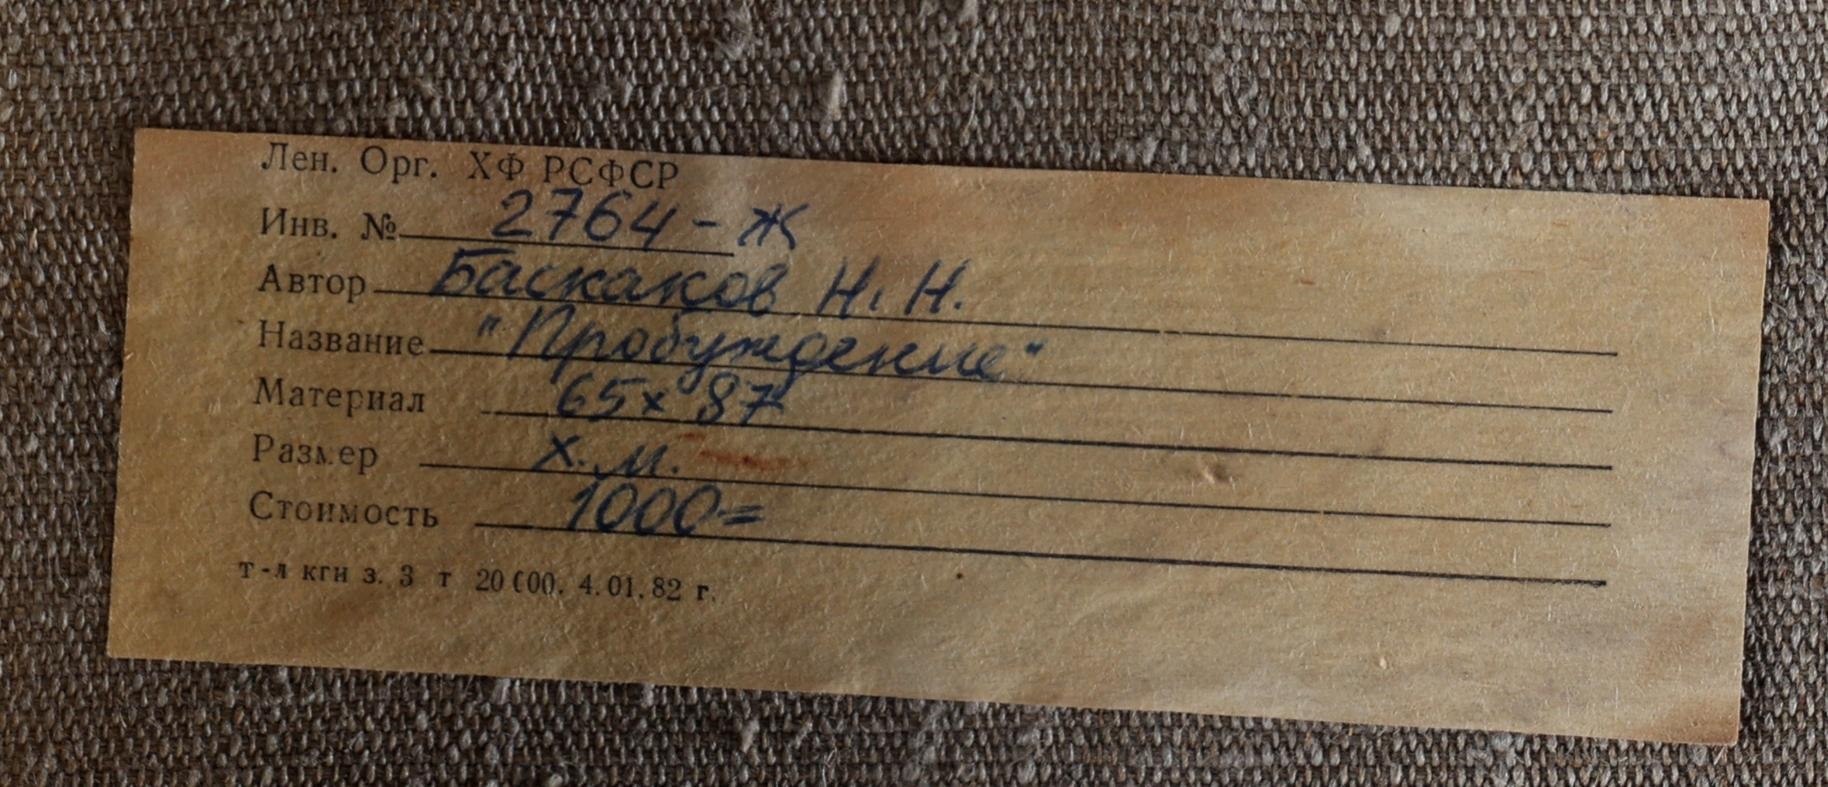 Лен. Орг. ХФ РСФСР
Инв. № 2764-Ж
Автор Баскаков Н. Н.
Название "Пробуждение"
Материал 65х87
Размер х.м.
Стоимость 1000=
т-л кгн з. 3 т 20000. 4.01.82 г.